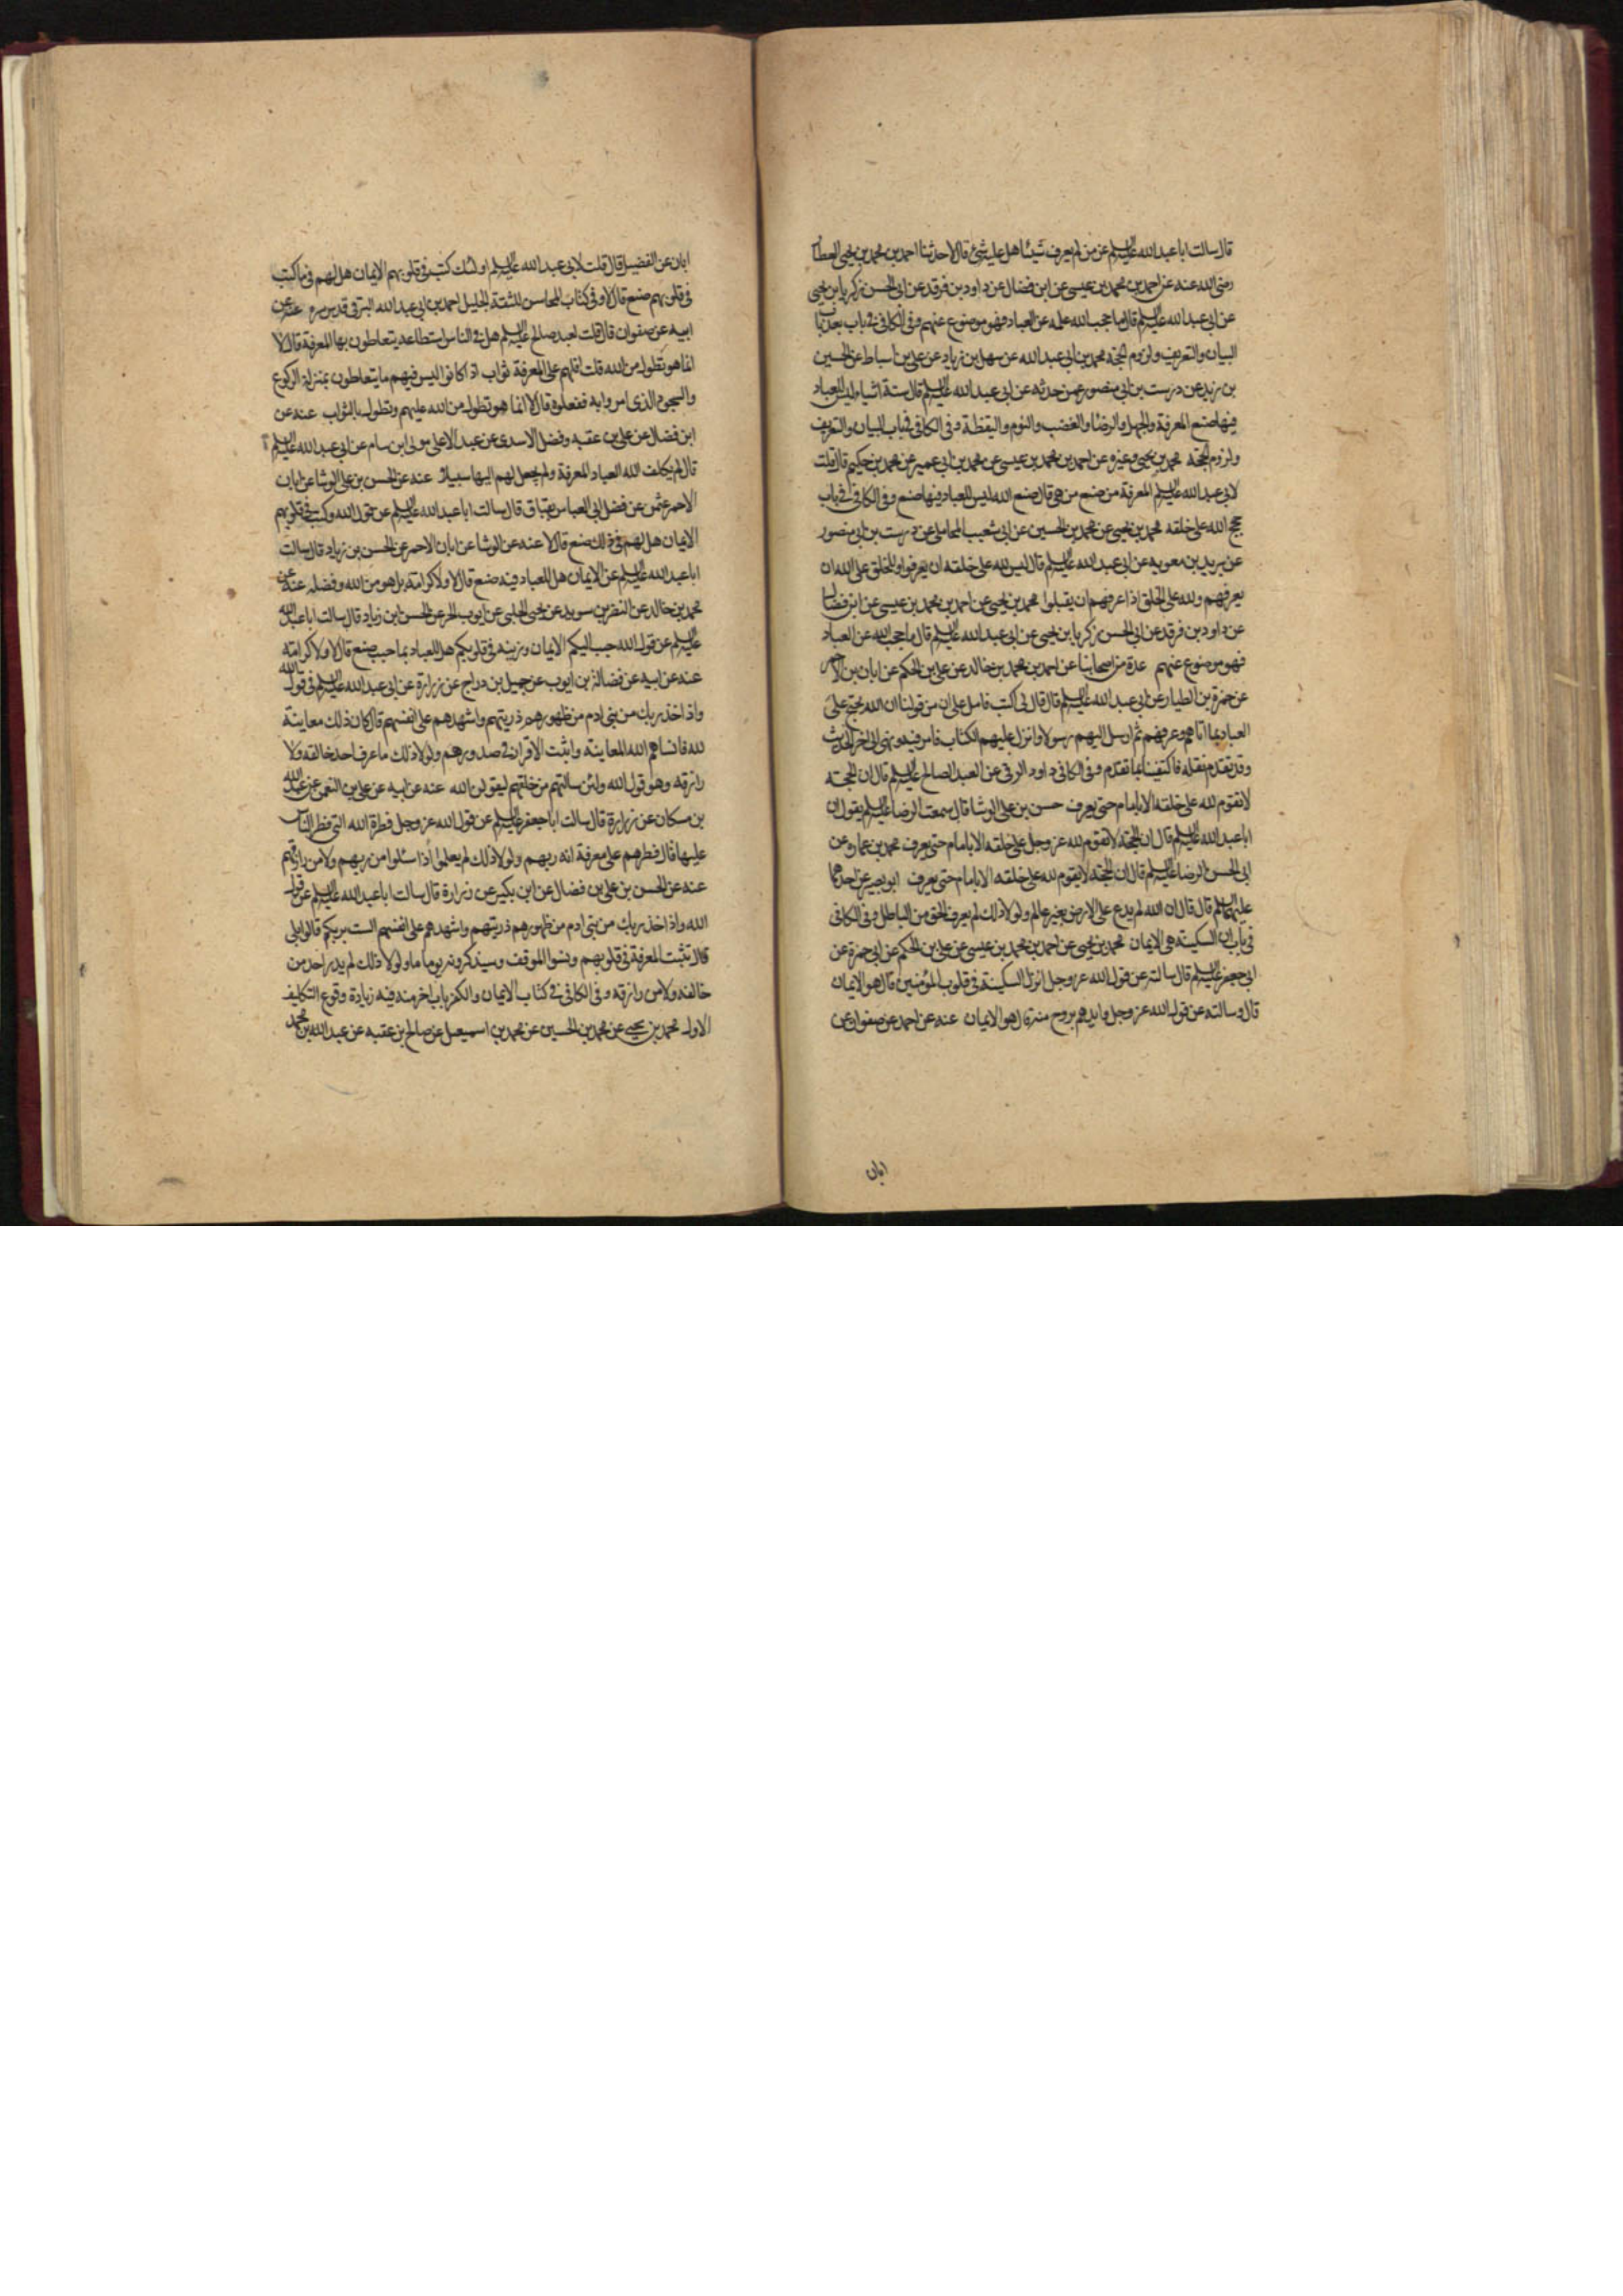 قال سالت ابا عبدالله عليه السلم عن من لم يعرف شيئا هل عليه شئ قال لا حدثنا احمد بن محمد بن يحيى العطار
رضى الله عنه عن احمد بن محمد بن عيسى عن ابن فضال عن داود بن فرقد عن ابى الحسن زكريا بن يحيى
عن ابى عبدالله عليه السلم قال ما حجب الله علمه عن العباد فهو موضوع عنهم وفى الكافى فى باب بعد باب
البيان والتعريف ولزوم الحجة محمد بن ابى عبدالله عن سهل بن زياد عن على بن اسباط عن الحسين
بن زيد عن درست بن ابى منصور عمن حدثه عن ابى عبدالله عليه السلم قال ستة اشياء ليس للعباد
فيها صنع المعرفة والجهل والرضا والغضب والنوم واليقظة وفى الكافى فى باب البيان والتعريف
ولزوم الحجة محمد بن يحيى وغيره عن احمد بن محمد بن عيسى عن محمد بن ابى عمير عن محمد بن حكيم قال قلت
لابى عبدالله عليه السلم المعرفة من صنع من هى قال صنع الله ليس للعباد فيها صنع وفى الكافى فى باب
حجج الله على خلقه محمد بن يحيى عن محمد بن الحسين عن ابى شعيب المحاملى عن درست بن ابى منصور
عن بريد بن معويه عن ابى عبدالله عليه السلم قال ليس لله على خلقه ان يعرفوا وللخلق على الله ان
يعرفهم ولله على الخلق اذا عرفهم ان يقبلوا محمد بن يحيى عن احمد بن محمد بن عيسى عن ابن فضال
عن داود بن فرقد عن ابى الحسن زكريا بن يحيى عن ابى عبدالله عليه السلم قال ما حجب الله عن العباد
فهو موضوع عنهم عدة من اصحابنا عن احمد بن محمد بن خالد عن على بن الحكم عن ابان بن الاحمر
عن حمزة بن الطيار عن ابى عبدالله عليه السلم قال قال لى اكتب فاملى على ان من قولنا ان الله يحتج على
العباد بما اتاهم وعرفهم ثم ارسل اليهم رسولا وانزل عليهم الكتاب فامر فيه ونهى الى اخر الحديث
وقد تقدم نقله فاكتفينا بما تقدم وفى الكافى داود الرقى عن العبد الصالح عليه السلم قال ان الحجة
لا تقوم لله على خلقه الا بامام حتى يعرف حسن بن على الوشا قال سمعت الرضا عليه السلم يقول ان
ابا عبدالله عليه السلم قال ان الحجة لا تقوم لله عز وجل على خلقه الا بامام حتى يعرف محمد بن عمارة عن
ابى الحسن الرضا عليه السلم قال ان الحجة لا تقوم لله على خلقه الا بامام حتى يعرف ابو بصير عن احدهما
عليهما السلم قال قال ان الله لم يدع على الارض بغير عالم ولولا ذلك لم يعرف الحق من الباطل وفى الكافى
فى باب ان السكينة هى الايمان محمد بن يحيى عن احمد بن محمد بن عيسى عن على بن الحكم عن ابى حمزة عن
ابى جعفر عليه السلم قال سالته عن قول الله عز وجل انزل السكينة فى قلوب المؤمنين قال هو الايمان
قال وسالته عن قول الله عز وجل وايدهم بروح منه قال هو الايمان عنه عن احمد عن صفوان عن
ابان
ابان عن الفضيل قال قلت لابى عبدالله عليه السلم اولئك كتب فى قلوبهم الايمان هل لهم فى ما كتب
فى قلوبهم صنع قال لا وفى كتاب المحاسن للثقة الجليل احمد بن ابى عبدالله البرقى قدس سره عنه عن
ابيه عن صفوان قال قلت لعبد صالح عليه السلم هل فى الناس استطاعة يتعاطون بها المعرفة قال لا
انما هو تطول من الله قلت افلهم على المعرفة ثواب اذا كانوا ليس فيهم ما يتعاطون بمنزلة الركوع
والسجود الذى امروا به ففعلوه قال لا انما هو تطول من الله عليهم وتطول بالثواب عنه عن
ابن فضال عن على بن عقبه وفضل الاسدى عن عبد الاعلى مولى ابن سام عن ابى عبدالله عليه السلم
قال لم يكلف الله العباد المعرفة ولم يجعل لهم اليها سبيلا عنه عن الحسن بن على الوشا عن ابان
الاحمر عثمن عن فضل ابى العباس بقباق قال سالت ابا عبدالله عليه السلم عن قول الله وكتب فى قلوبهم
الايمان هل لهم فى ذلك صنع قال لا عنه عن الوشا عن ابان الاحمر عن الحسن بن زياد قال سالت
ابا عبدالله عليه السلم عن الايمان هل للعباد فيه صنع قال لا ولا كرامة بل هو من الله وفضله عنه عن
محمد بن خالد عن النضر بن سويد عن يحيى الحلبى عن ايوب الحر عن الحسن ابن زياد قال سالت ابا عبدالله
عليه السلم عن قول الله حبب اليكم الايمان وزينه فى قلوبكم هل للعباد بما حبب صنع قال لا ولا كرامة
عنه عن ابيه عن فضالة بن ايوب عن جميل بن دراج عن زرارة عن ابى عبدالله عليه السلم فى قول الله
واذ اخذ ربك من بنى ادم من ظهورهم ذريتهم واشهدهم على انفسهم قال كان ذلك معاينة
لله فانساهم الله المعاينة واثبت الاقرار فى صدورهم ولولا ذلك ما عرف احد خالقه ولا
رازقه وهو قول الله ولئن سالتهم من خلقهم ليقولن الله عنه عن ابيه عن على بن النعمن عن عبدالله
بن مسكان عن زرارة قال سالت ابا جعفر عليه السلم عن قول الله عز وجل فطرة الله التى فطر الناس
عليها قال فطرهم على معرفة انه ربهم ولولا ذلك لم يعلموا اذا سئلوا من ربهم ولا من رازقهم
عنه عن الحسن بن على بن فضال عن ابن بكير عن زرارة قال سالت ابا عبدالله عليه السلم عن قول
الله واذ اخذ ربك من بنى ادم من ظهورهم ذريتهم واشهدهم على انفسهم الست بربكم قالوا بلى
قال ثبتت المعرفة فى قلوبهم ونسوا الموقف وسيذكرونه يوما ما ولولا ذلك لم يدر احد من
خالقه ولا من رازقه وفى الكافى فى كتاب الايمان والكفر باب اخر منه فيه زيادة وقوع التكليف
الاول محمد بن يحيى عن محمد بن الحسين عن محمد بن اسمعيل عن صالح بن عقبه عن عبدالله بن محمد